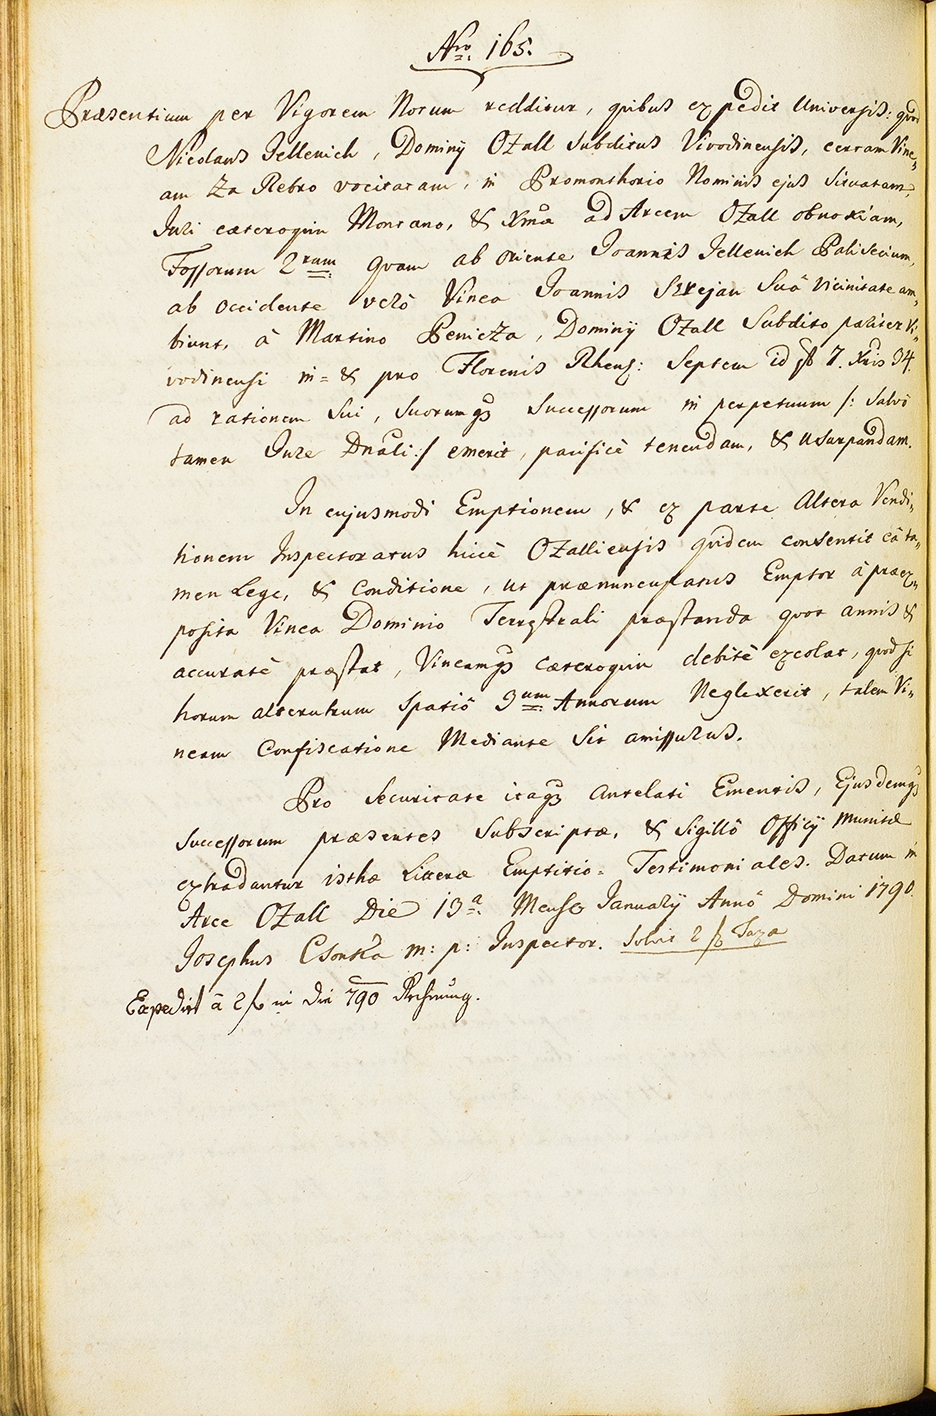 Nro 165.
Præsentium per Vigorem Notum redditur, quibus expedit Universis: quod
Nicolaus Jellenich, Dominÿ Ozall Subditus Vivodinensis, certam Vine„
am Za Rebro vocitatam, in Promonthorio Nominis ejus Situatam,
Juri cæteroquin Montano, & Xmæ ad Arcem Ozall obnoxiam,
Fossorum 2rum quam ab oriente Joannis Jellenich Paliseium,
ab occidente verò Vinea Joannis Strejan Suâ vicinitate am„
biunt, à Martino Benicza, Dominÿ Ozall Subdito pariter Vi„
vodinensi in= & pro Florenis Rhens: Septem id est 7. Xris 34.
ad rationem Sui, Suorumq3 Successorum in perpetuum /: Salvô
tamen Jure Dnâli :/ emerit, pacificè tenendam, & usurpandam.
In cujusmodi Emptionem, & ex parte Altera Vendi„
tionem Inspectoratus hicce Ozalliensis quidem consentit eâ ta„
men Lege, & Conditione, ut prænuncupatus Emptor à præex„
posita Vinea Dominio Terrestrali præstanda quot annis &
accuratè præstat, Vineamq3 cæteroquin debitè excolat, quod si
horum alterutrum Spatiô 3um Annorum Neglexerit, talem Vi„
neam Confiscatione Mediante Sit amissurus.
Pro Securitate itaq3 Antelati Ementis, Ejusdemq3
Successorum præsentes Subscriptæ, & Sigillô Officÿ Munitæ
extradantur isthæ Litteræ Emptitio= Testimoniales. Datum in
Arce Ozall Die 13a. Mensis Januarÿ Annô Domini 1790.
Josephus Csonka m: p: Inspector. Solvit 2 f Taxa
Expedirt â 2 f in die 790 Rechnung.